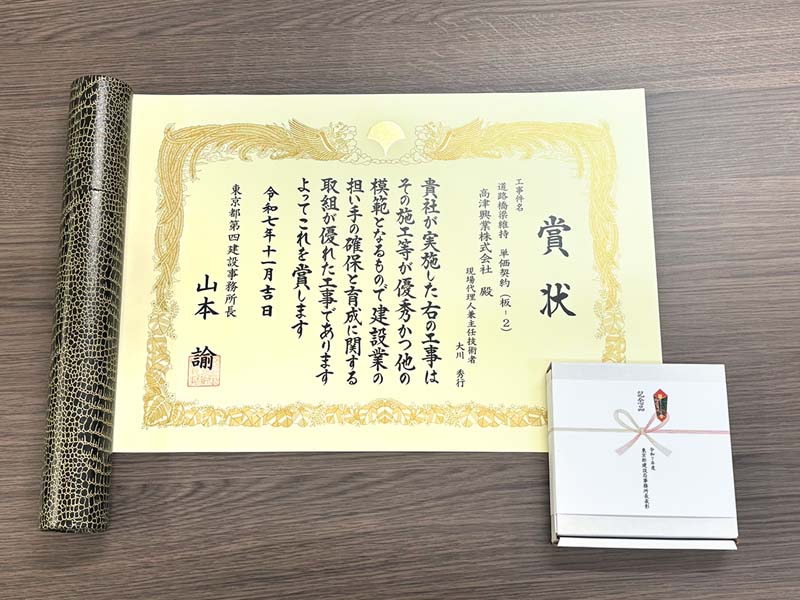 賞状
工事件名
道路橋梁維持 単価契約(板-2)
高津興業株式会社 殿
現場代理人兼主任技術者
大川 秀行
貴社が実施した右の工事は
その施工等が優秀かつ他の
模範となるもので建設業の
担い手の確保と育成に関する
取組が優れた工事であります
よってこれを賞します
令和七年十一月吉日
東京都第四建設事務所長
山本 諭
記念品
令和7年度
東京都建設局事務所長表彰